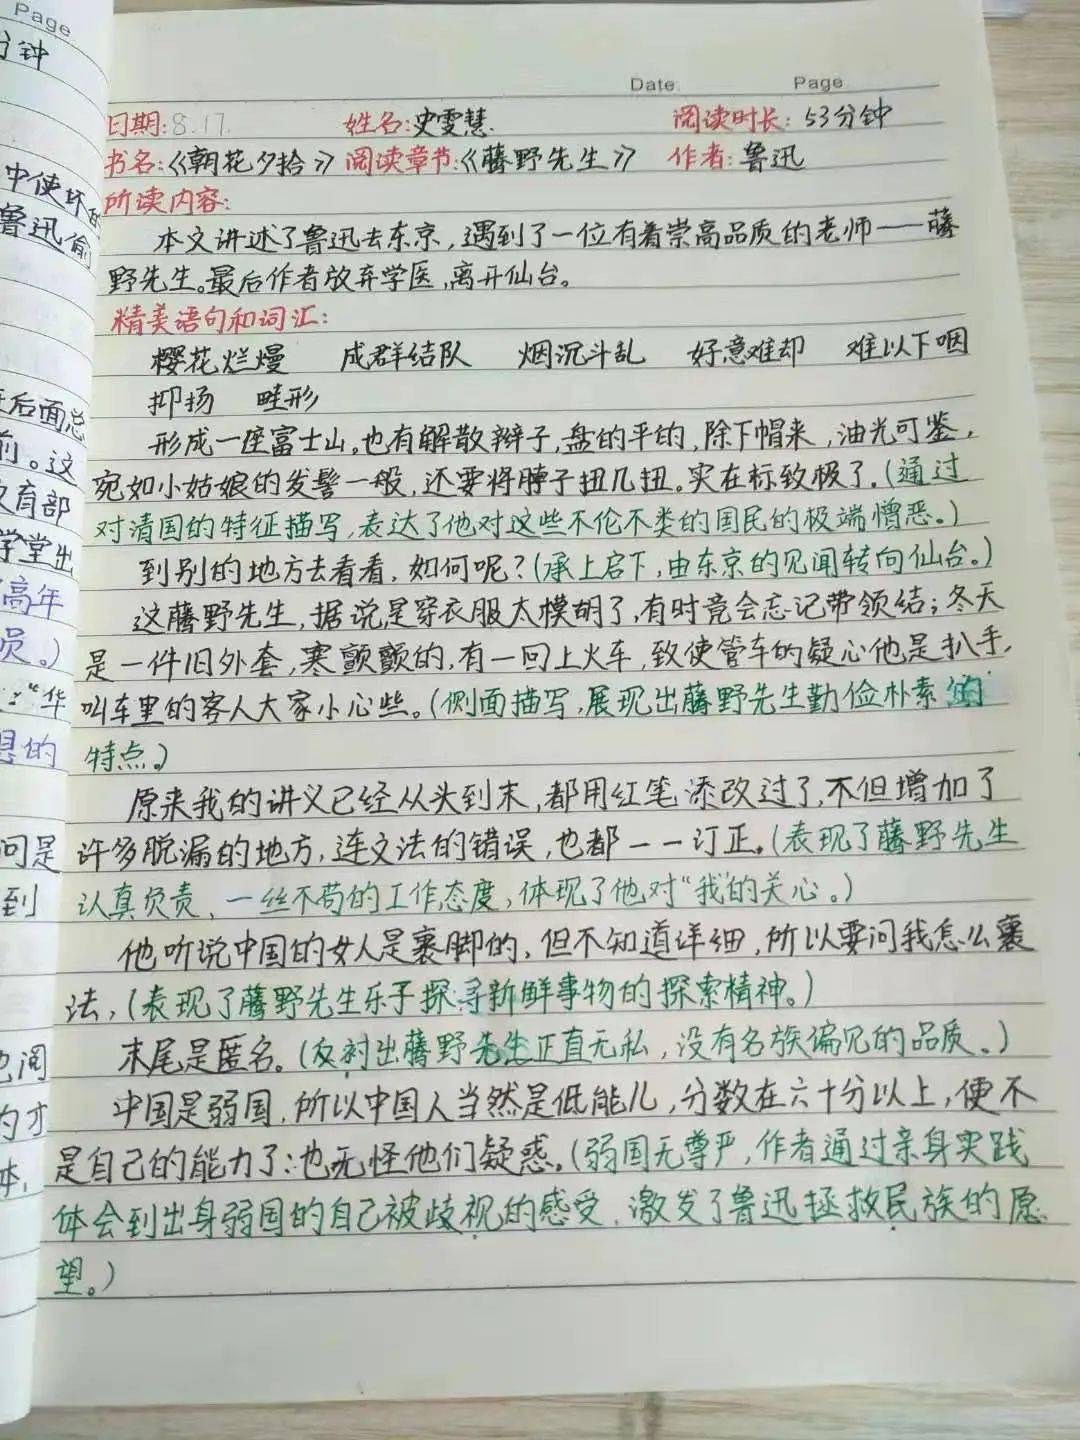 Page
分钟
中使坏的
鲁迅偷
后面总
前。这
教育部
学堂出
高年
员。）
：“华
的
问是
到
阅
的才
体，
Date    Page
日期:8.17.    姓名:史雯慧    阅读时长: 53分钟
书名:《朝花夕拾》 阅读章节:《藤野先生》 作者:鲁迅
所读内容:
本文讲述了鲁迅去东京，遇到了一位有着崇高品质的老师——藤
野先生。最后作者放弃学医，离开仙台。
精美语句和词汇:
樱花烂熳 成群结队 烟沉斗乱 好意难却 难以下咽
抑扬 畦形
形成一座富士山。也有解散辫子，盘的平的，除下帽来，油光可鉴，
宛如小姑娘的发髻一般，还要将脖子扭几扭。实在标致极了。(通过
对清国的特征描写，表达了他对这些不伦不类的国民的极端憎恶。)
到别的地方去看看，如何呢?(承上启下，由东京的见闻转向仙台。)
这藤野先生，据说是穿衣服太模胡了，有时竟会忘记带领结；冬天
是一件旧外套，寒颤颤的，有一回上火车，致使管车的疑心他是扒手，
叫车里的客人大家小心些。(侧面描写，展现出藤野先生勤俭朴素的
特点。)
原来我的讲义已经从头到末，都用红笔添改过了，不但增加了
许多脱漏的地方，连文法的错误，也都一一订正。(表现了藤野先生
认真负责、一丝不苟的工作态度，体现了他对“我”的关心。)
他听说中国的女人是裹脚的，但不知道详细，所以要问我怎么裹
法，(表现了藤野先生乐于探寻新鲜事物的探索精神。)
末尾是匿名。(反衬出藤野先生正直无私，没有名族偏见的品质。)
中国是弱国，所以中国人当然是低能儿，分数在六十分以上，便不
是自己的能力了：也无怪他们疑惑。(弱国无尊严，作者通过亲身实践
体会到出身弱国的自己被歧视的感受，激发了鲁迅拯救民族的愿
望。)